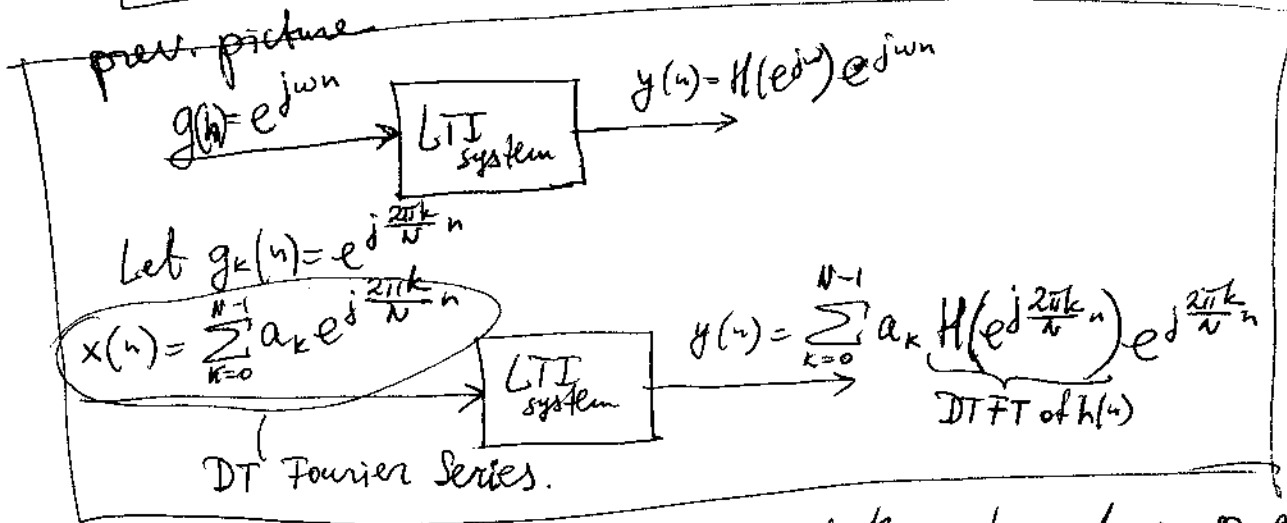 prev. picture
g(n) = e^{jωn}
LTI system
y(n) = H(e^{jω}) e^{jωn}
Let g_k(n) = e^{j\frac{2πk}{N}n}
x(n) = \sum_{k=0}^{N-1} a_k e^{j\frac{2πk}{N}n}
LTI system
y(n) = \sum_{k=0}^{N-1} a_k H(e^{j\frac{2πk}{N}n}) e^{j\frac{2πk}{N}n}
DTFT of h(n)
DT Fourier Series.